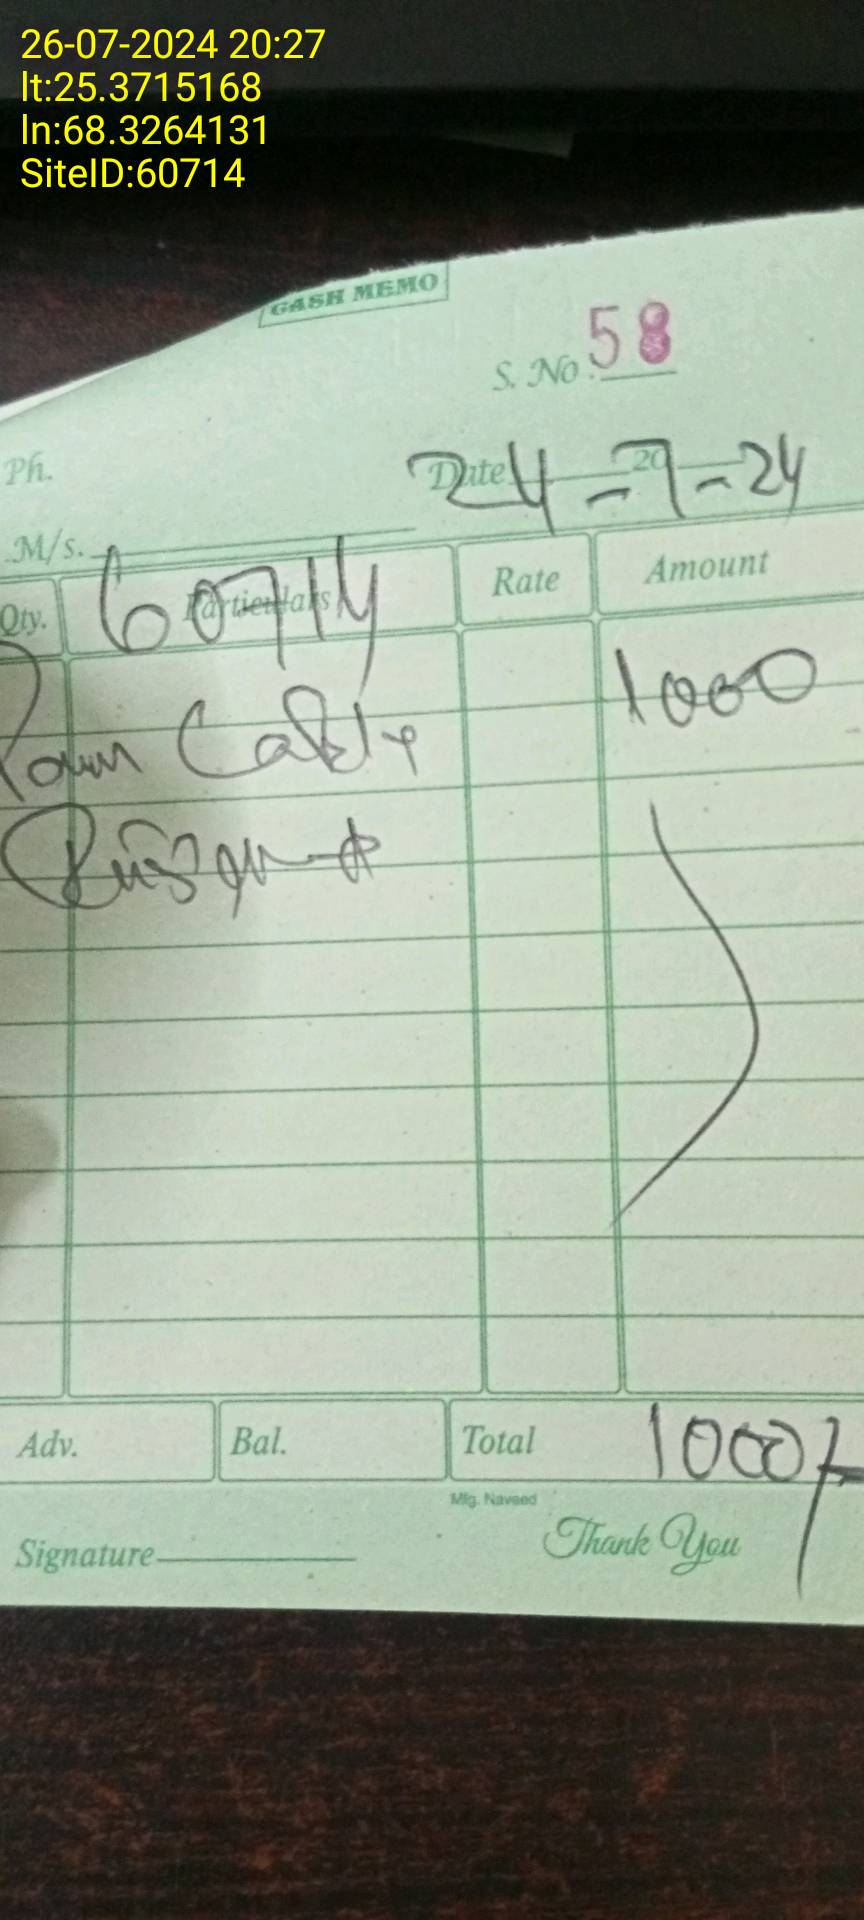 26-07-2024 20:27
lt:25.3715168
ln:68.3264131
SiteID:60714
CASH MEMO
S. No. 58
Ph.
Date 20
24-7-24
M/s.
60714
Qty. Particulars Rate Amount
1000
Cable
Adv. Bal. Total 1000/-
Mfg. Naveed
Signature
Thank You